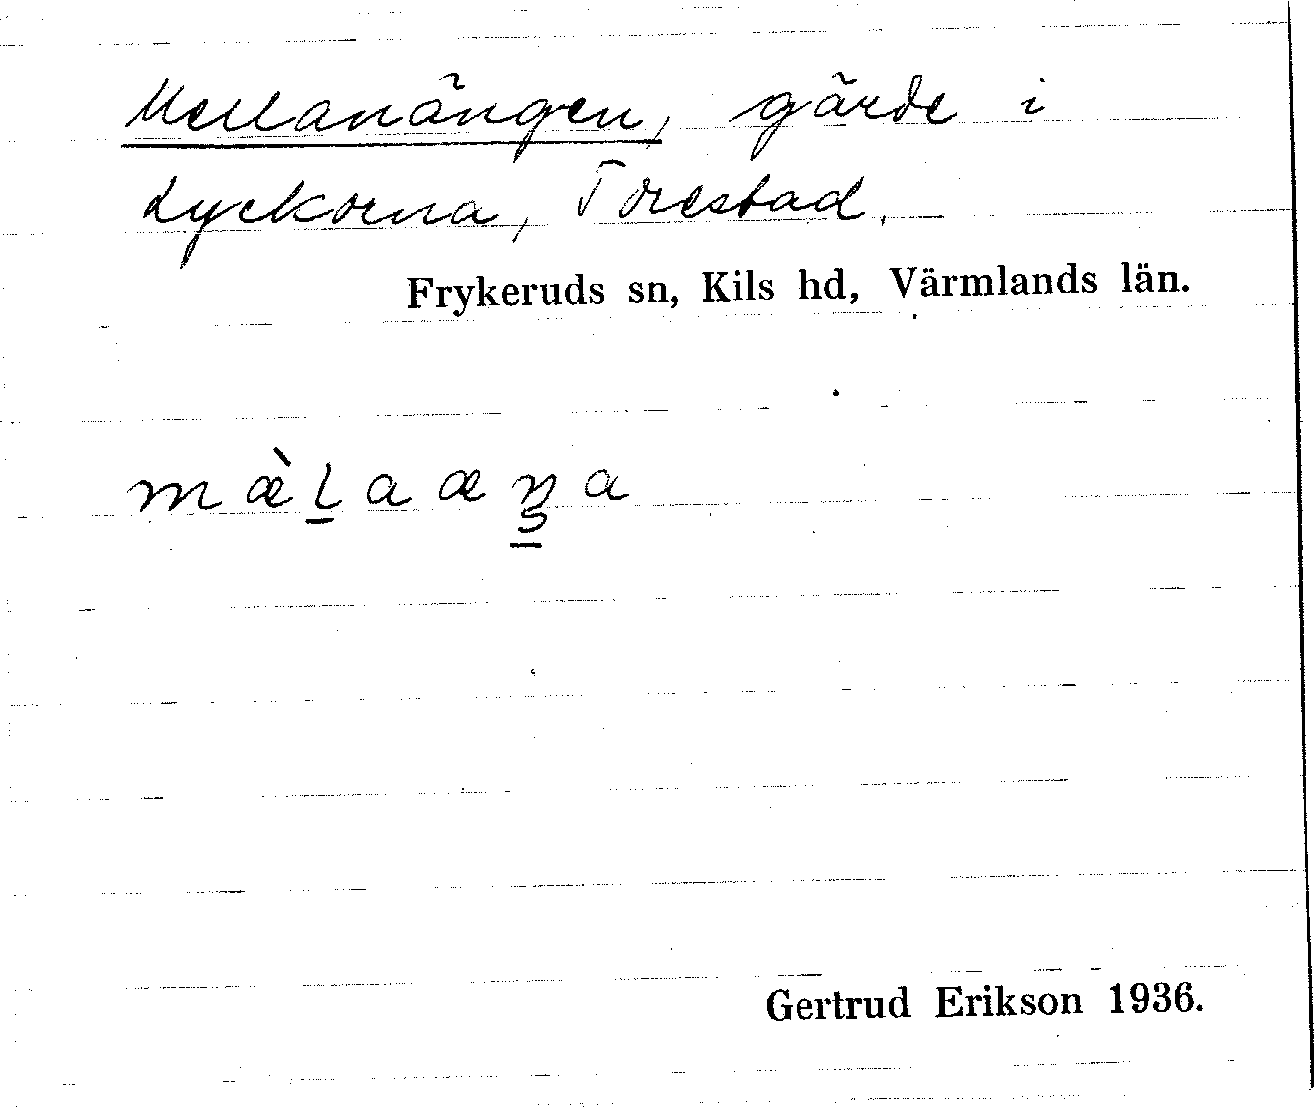 Mellanängen, gärde i
Lyckorna, Torestad.
Frykeruds sn, Kils hd, Värmlands län.
mæ̀l̲aæŋ̲a
Gertrud Erikson 1936.